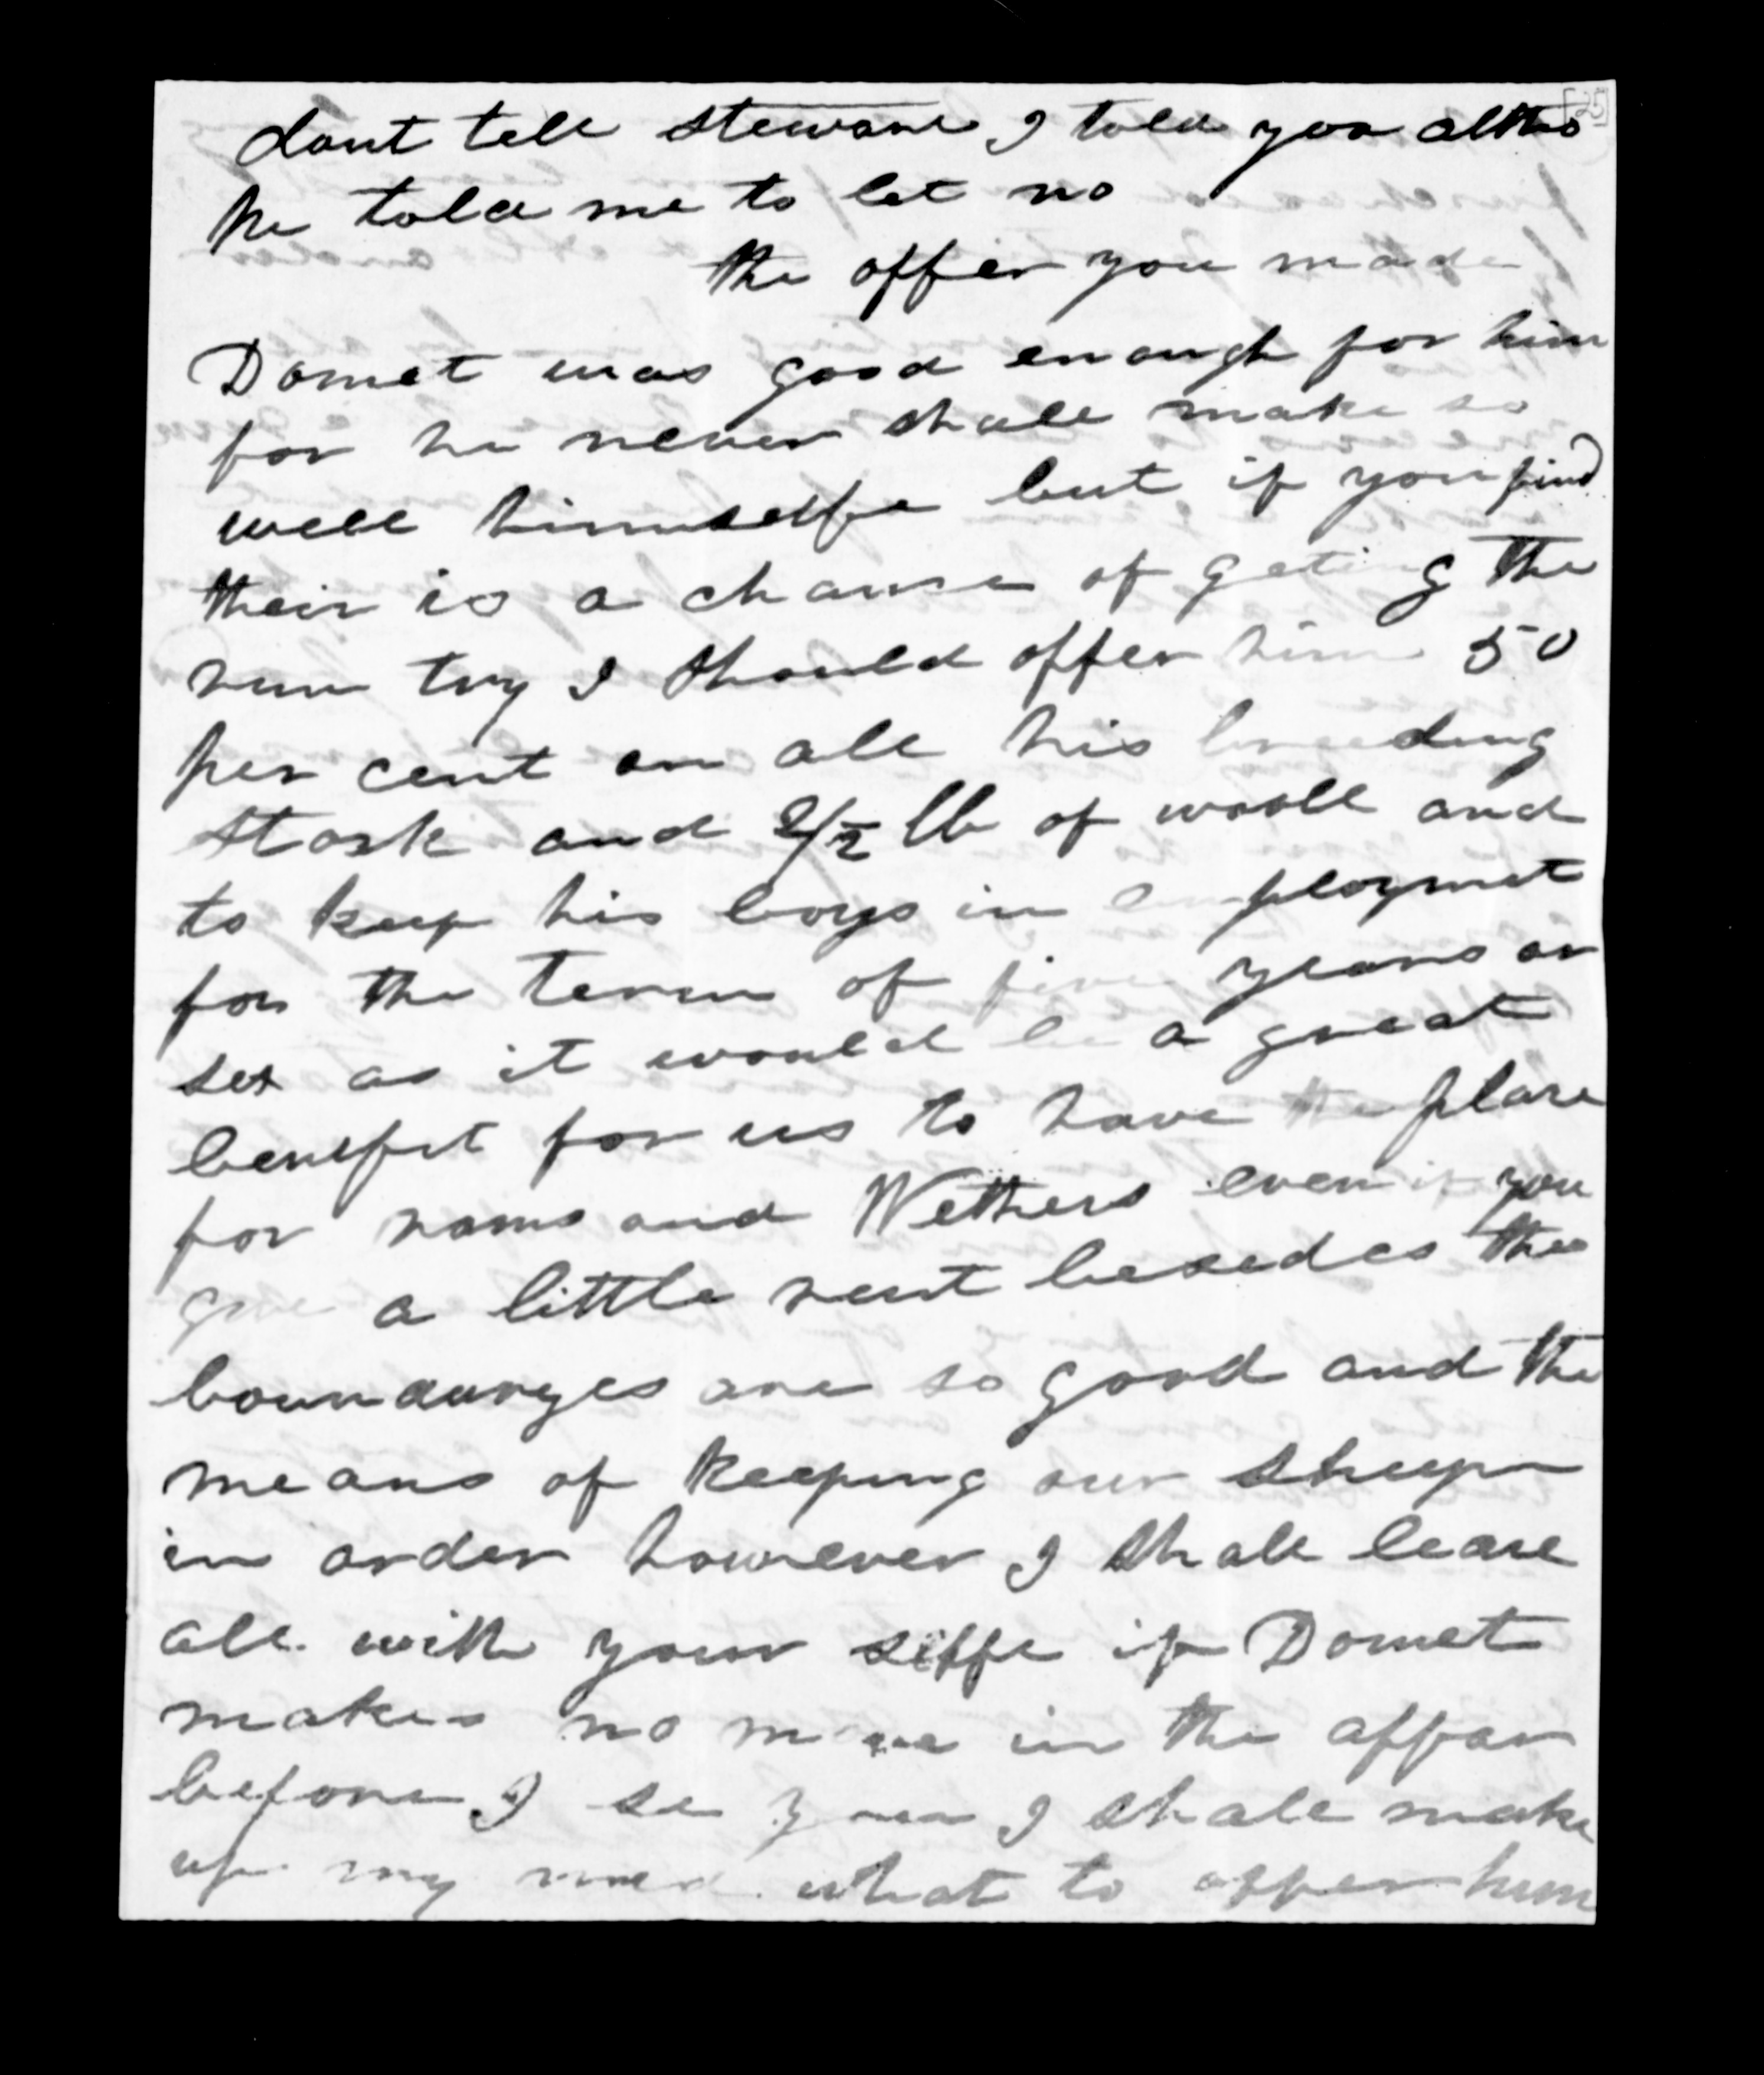 dont tell steward I told you altho
he told me to let no
the offer you made
Domet was good enough for him
for he never shall make so
well himselfe but if you find
their is a chance of geting the
run try I should offer him 50
per cent on all his breeding
stock and 2/½ lb of wooll and
to keep his boys in employmet
for the term of five years or
sex as it would be a great
benefit for us to have the place
for rams and Wethers even if you
give a little rent besedes the
boundaryes are so good and the
means of keeping our sheep
in order however I shall leave
all with your selfe if Domet
makes no move in the affar
before I se you I shall make
up my mind what to offer him